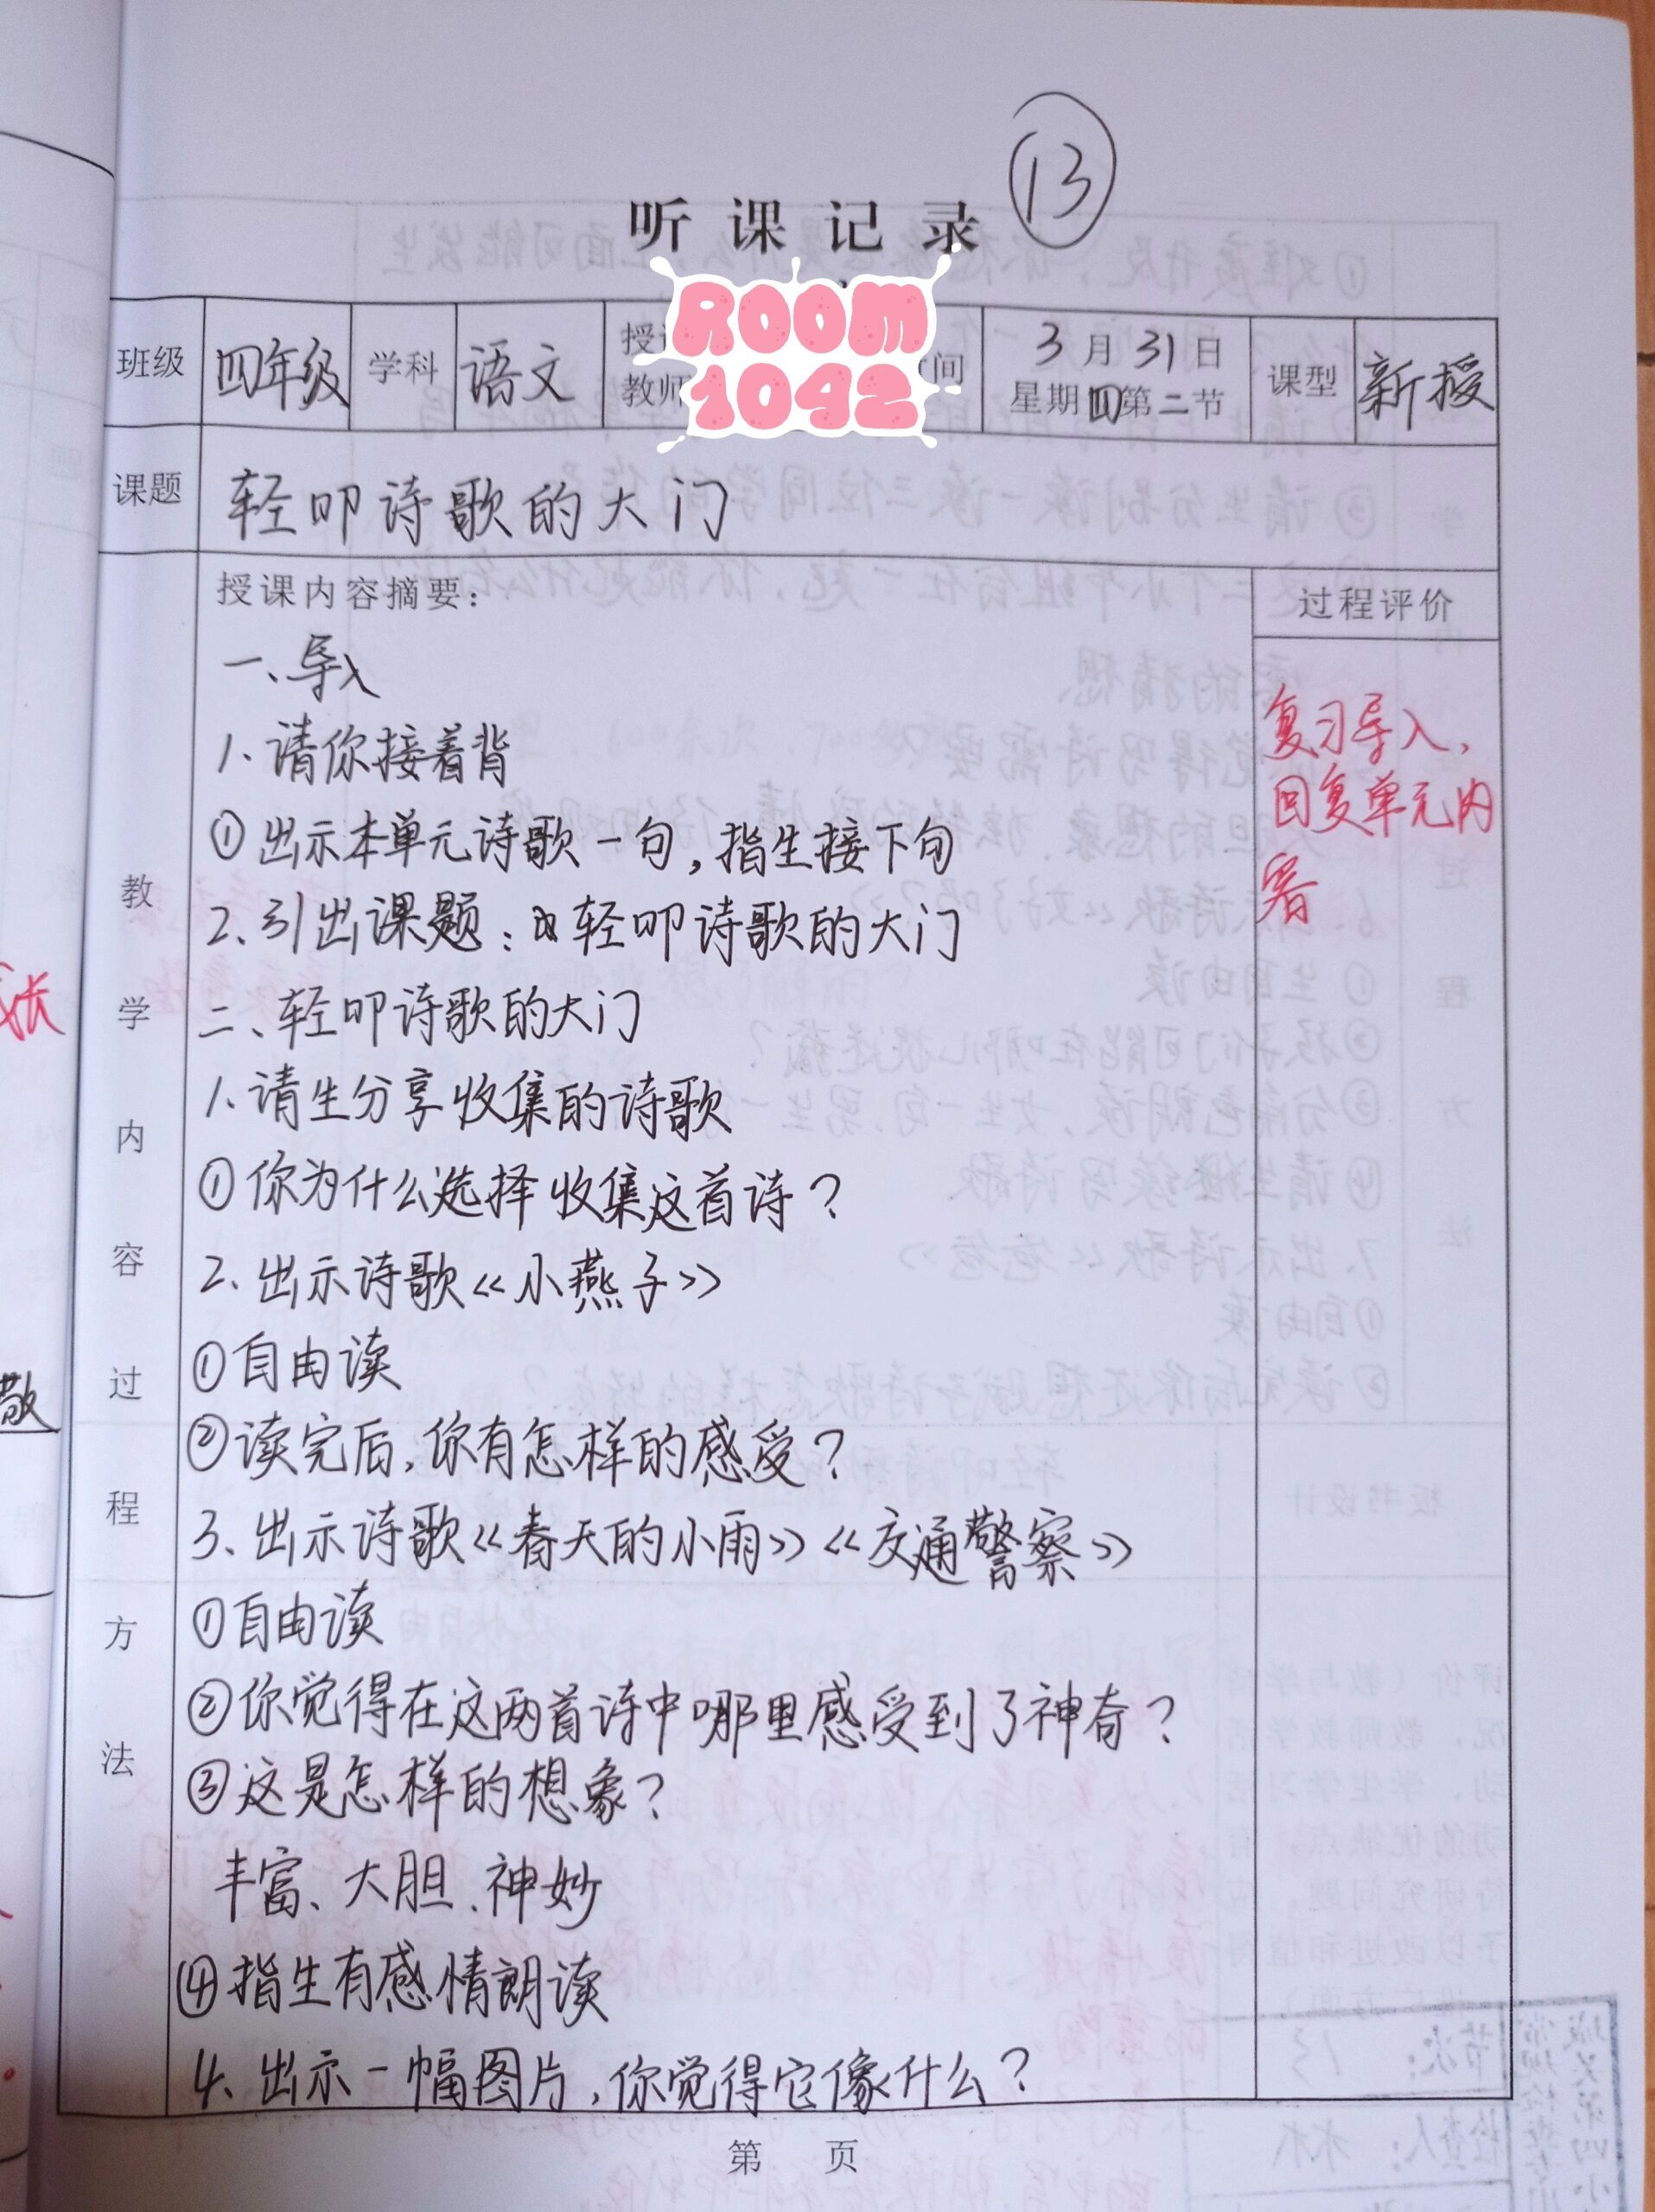 听课记录 ⑬
ROOM
1042
班级 四年级 学科 语文 教师 间 3月31日 星期四第二节 课型 新授
课题 轻叩诗歌的大门
授课内容摘要:
过程评价
教学内容过程方法
一、导入
1、请你接着背
①出示本单元诗歌一句,指生接下句
2、引出课题:轻叩诗歌的大门
二、轻叩诗歌的大门
1、请生分享收集的诗歌
①你为什么选择收集这首诗?
2、出示诗歌《小燕子》
①自由读
②读完后,你有怎样的感受?
3、出示诗歌《春天的小雨》《交通警察》
①自由读
②你觉得在这两首诗中哪里感受到了神奇?
③这是怎样的想象?
丰富、大胆、神妙
④指生有感情朗读
4、出示一幅图片,你觉得它像什么?
复习导入,
回复单元内
容
第 页